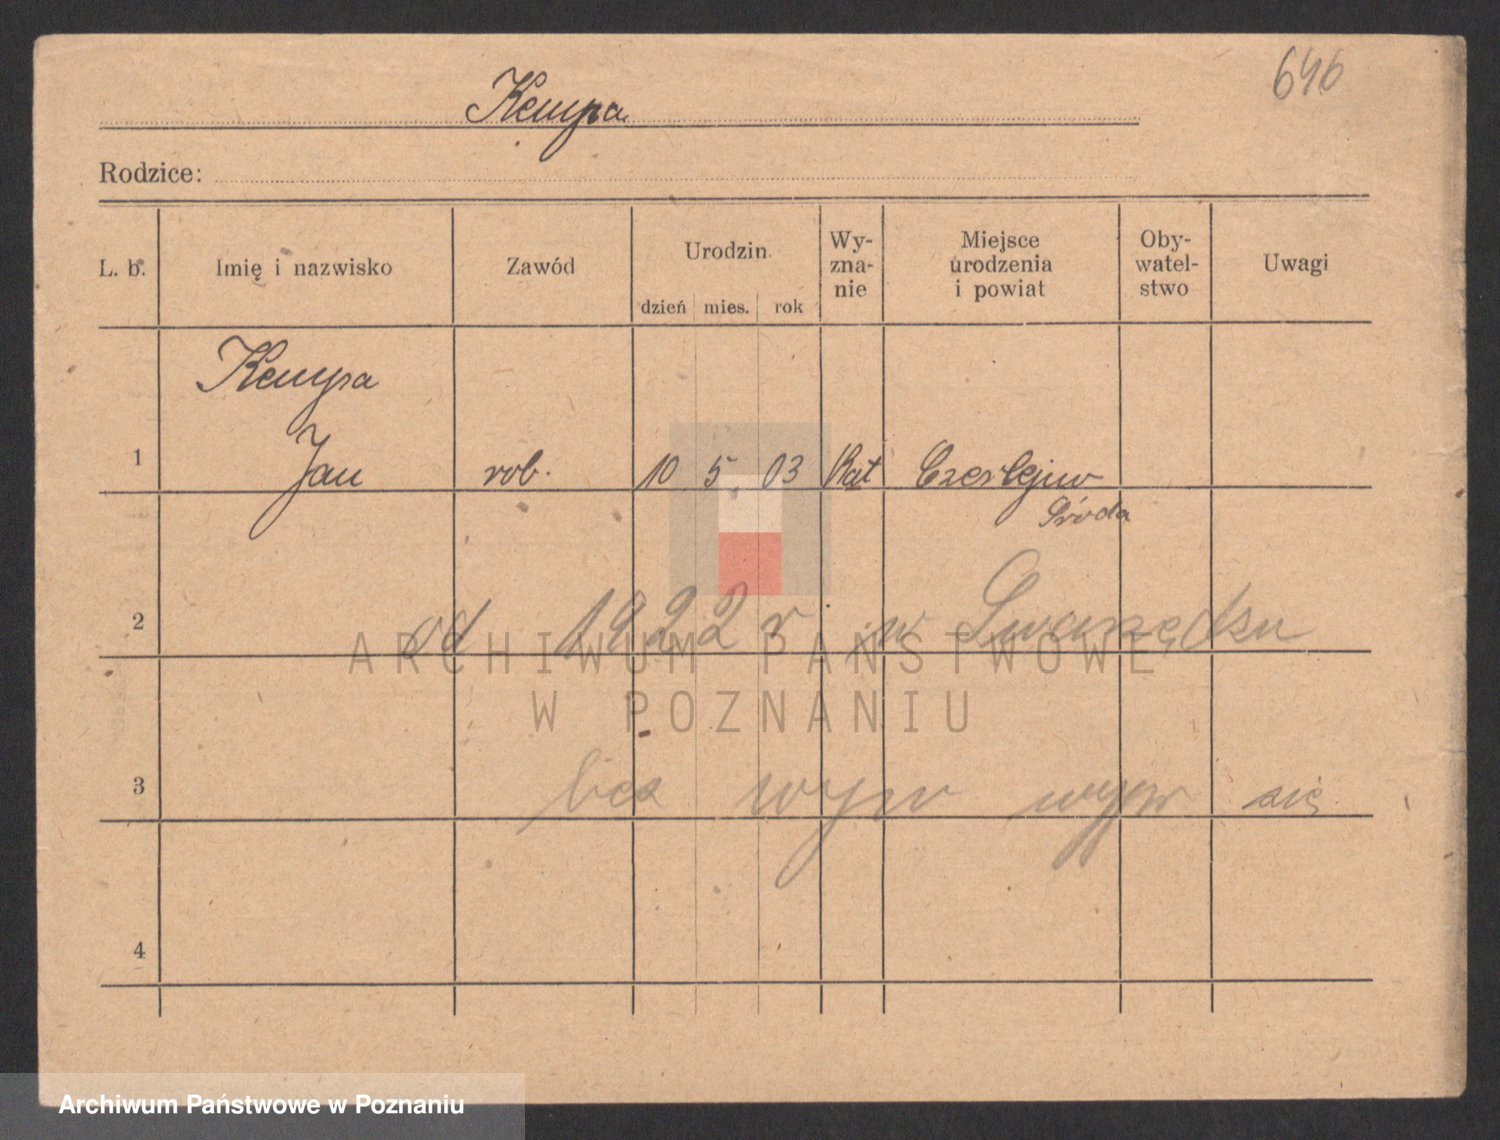 646
Kempa
Rodzice:
L. b. Imię i nazwisko Zawód Urodzin Wy- zna- nie Miejsce urodzenia i powiat Oby- watel- stwo Uwagi
dzień mies. rok
Kempa
1 Jan rob. 10 5. 03 Kat Czerlejno
Środa
2 od 1922 r w Swarzędzu
ARCHIWUM PAŃSTWOWE
W POZNANIU
3 bez wyjw się
4
Archiwum Państwowe w Poznaniu